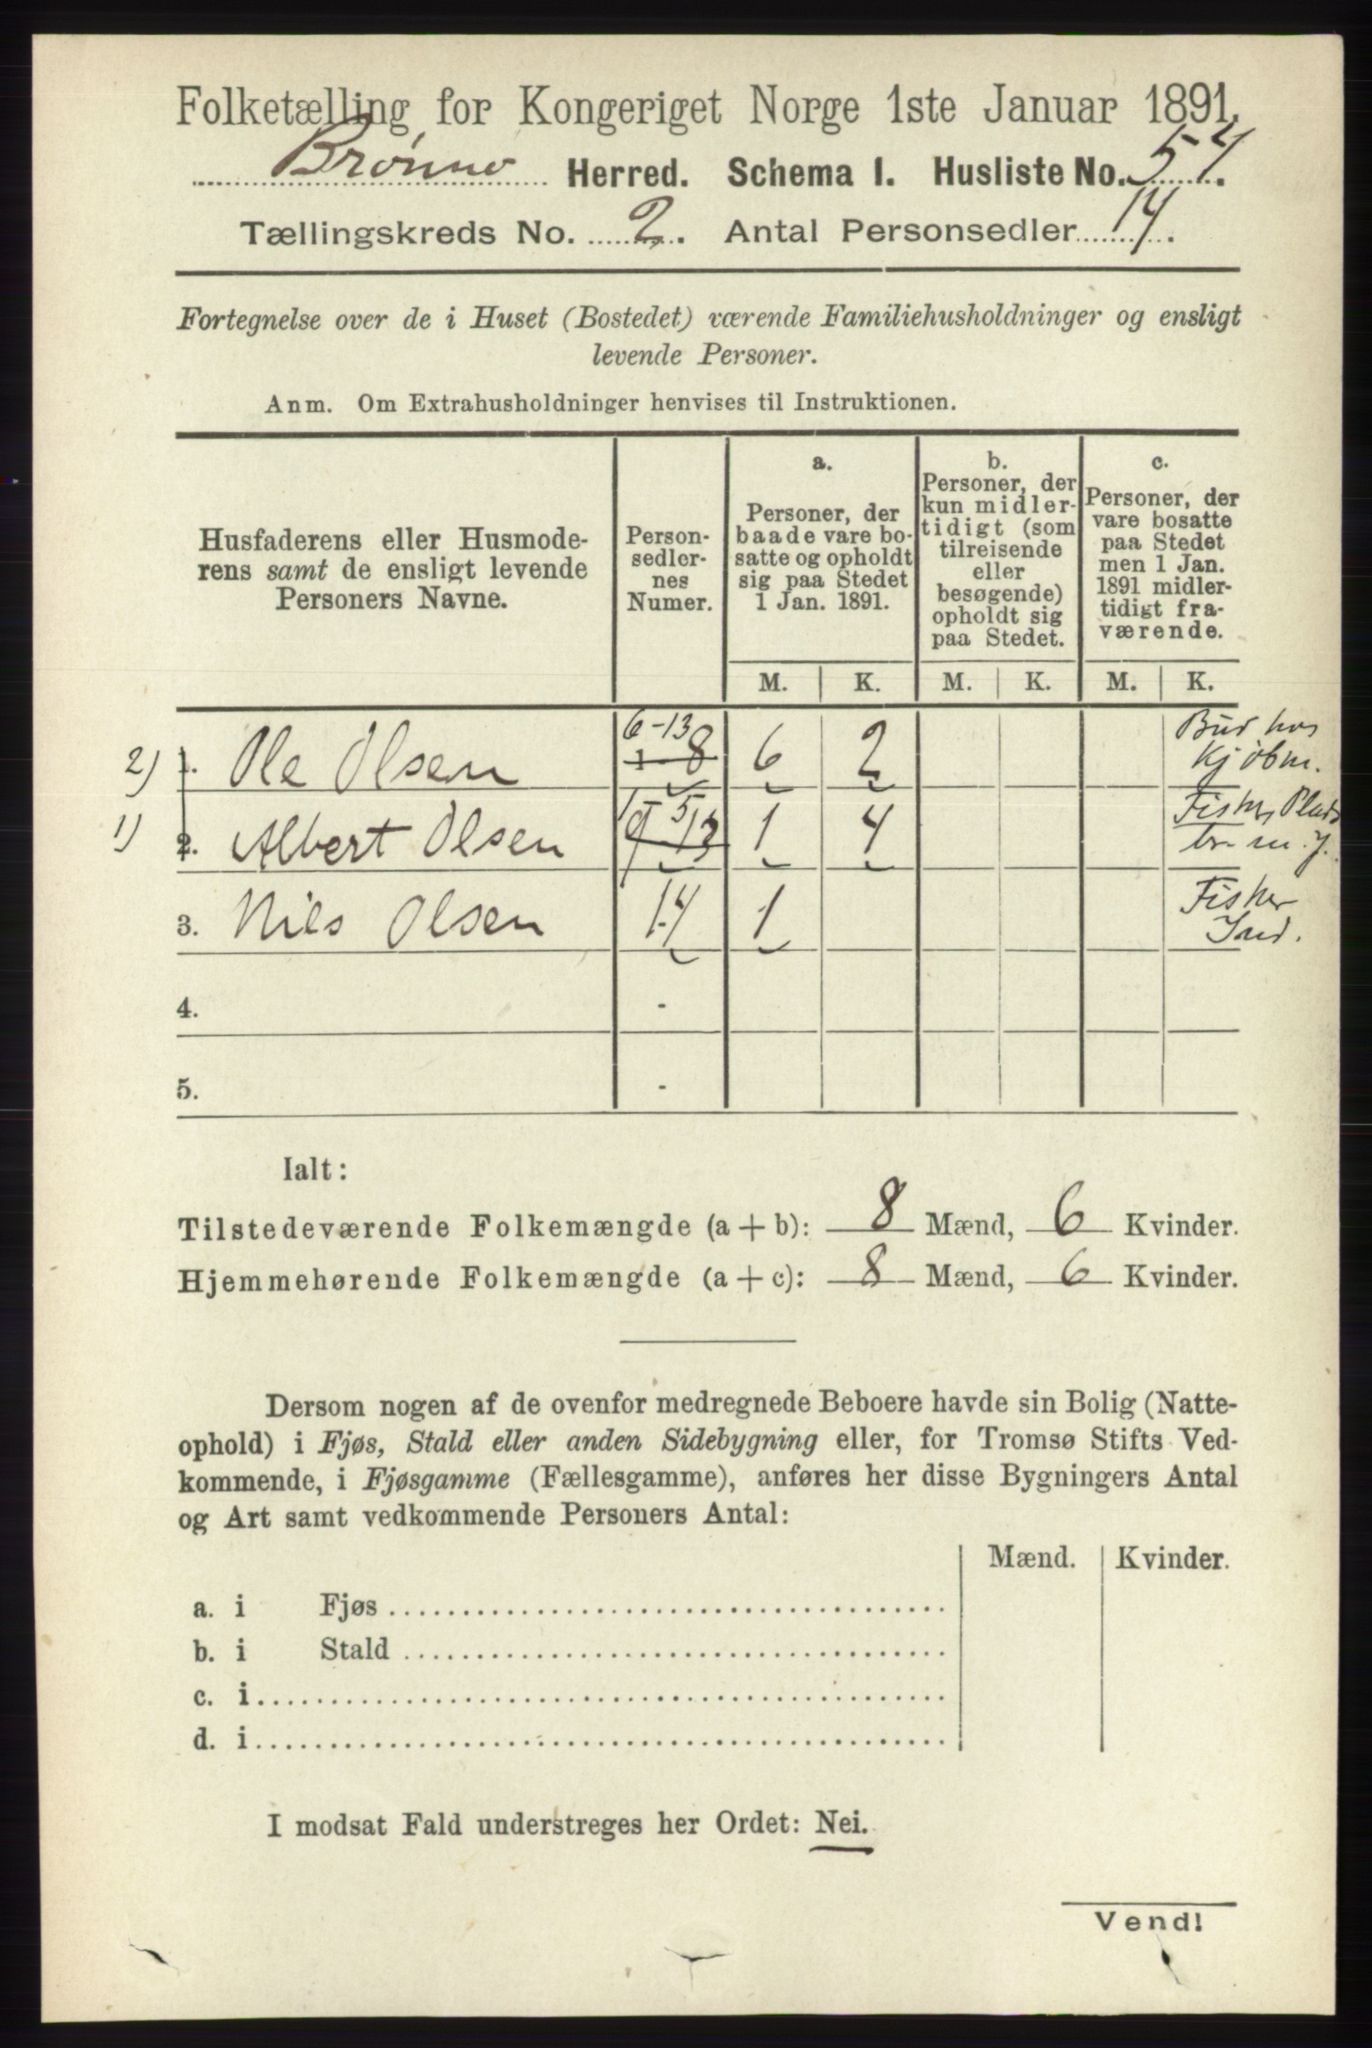 Folketælling for Kongeriget Norge 1ste Januar 1891.
Brønnø Herred. Schema I. Husliste No. 54.
Tællingskreds No. 2. Antal Personsedler 14.
Fortegnelse over de i Huset (Bostedet) værende Familiehusholdninger og ensligt
levende Personer.
Anm. Om Extrahusholdninger henvises til Instruktionen.
Husfaderens eller Husmode-
rens samt de ensligt levende
Personers Navne.
Person-
sedler-
nes
Numer.
a.
Personer, der
baade vare bo-
satte og opholdt
sig paa Stedet
1 Jan. 1891.
b.
Personer, der
kun midler-
tidigt (som
tilreisende
eller
besøgende)
opholdt sig
paa Stedet.
c.
Personer, der
vare bosatte
paa Stedet
men 1 Jan.
1891 midler-
tidigt fra-
værende.
M. K. M. K. M. K.
6-13
2) 1. Ole Olsen 1-8 6 2 Bud hos
Kjøbm.
1) 2. Albert Olsen 1 4 Fisker
3. Nils Olsen 14 1 Fisker
Ind.
4. -
5. -
Ialt:
Tilstedeværende Folkemængde (a + b): 8 Mænd, 6 Kvinder.
Hjemmehørende Folkemængde (a + c): 8 Mænd, 6 Kvinder.
Dersom nogen af de ovenfor medregnede Beboere havde sin Bolig (Natte-
ophold) i Fjøs, Stald eller anden Sidebygning eller, for Tromsø Stifts Ved-
kommende, i Fjøsgamme (Fællesgamme), anføres her disse Bygningers Antal
og Art samt vedkommende Personers Antal:
Mænd. Kvinder.
a. i Fjøs
b. i Stald
c. i
d. i
I modsat Fald understreges her Ordet: Nei.
Vend!